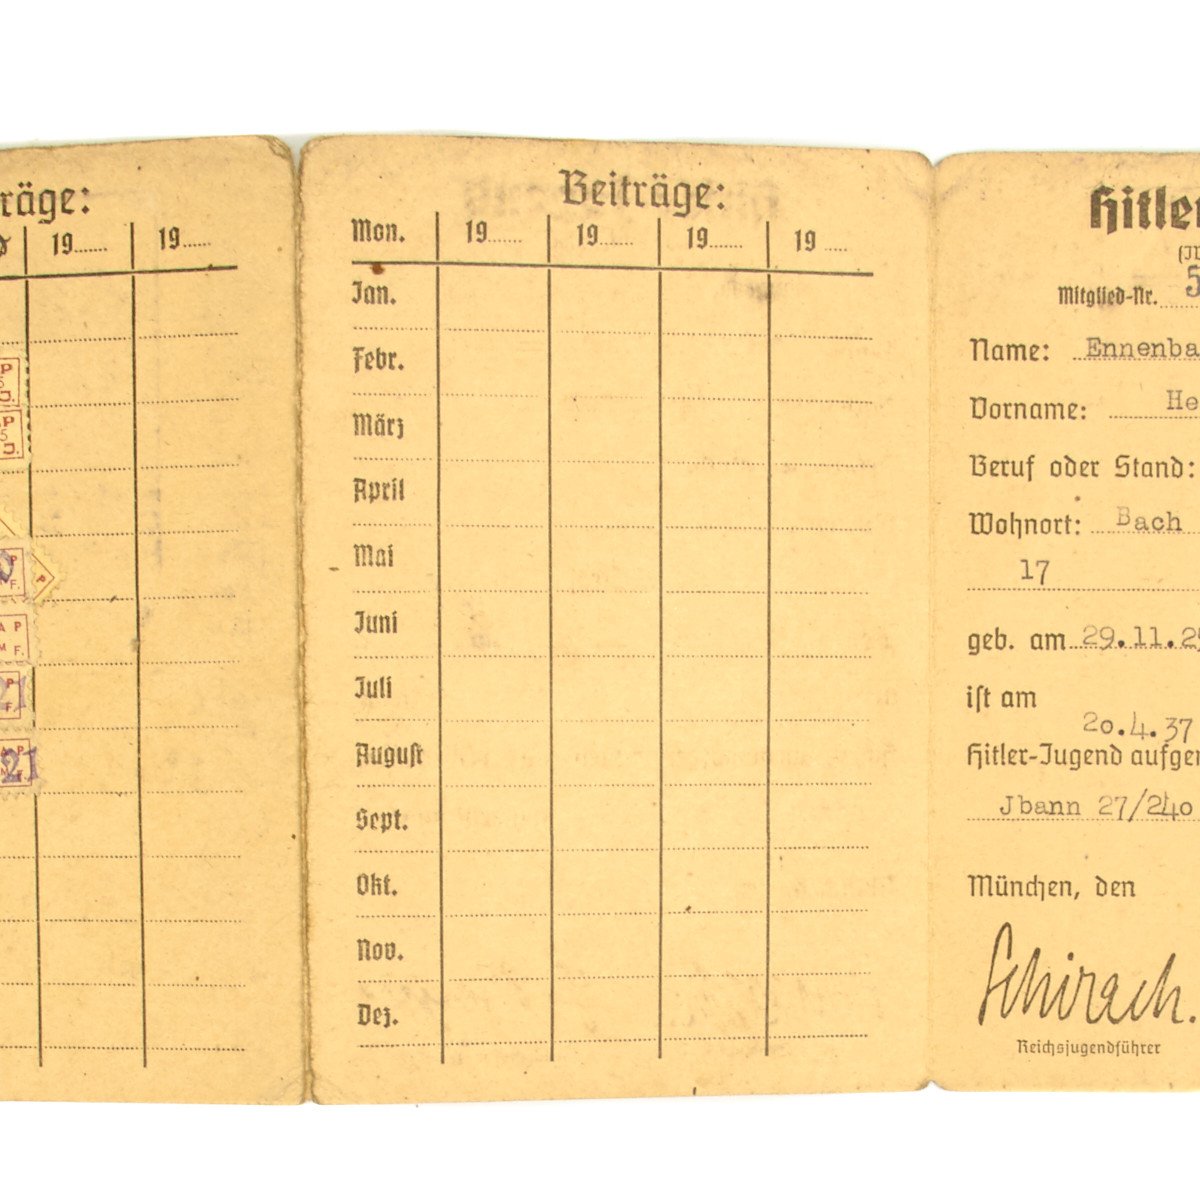 räge:
19...... 19......
P
P
5
J.
P
P
F.
A P
M F.
P
21
F.
A P
21
Beiträge:
Mon. 19...... 19...... 19...... 19 ....
Jan.
Febr.
März
April
Mai
Juni
Juli
August
Sept.
Okt.
Nov.
Dez.
Hitler
Mitglied-Nr. 5
Name: Ennenba
Vorname: He
Beruf oder Stand:
Wohnort: Bach
17
geb. am 29.11.2
ist am
20.4.37
Hitler-Jugend aufge
Jbann 27/240
München, den
Schirach.
Reichsjugendführer